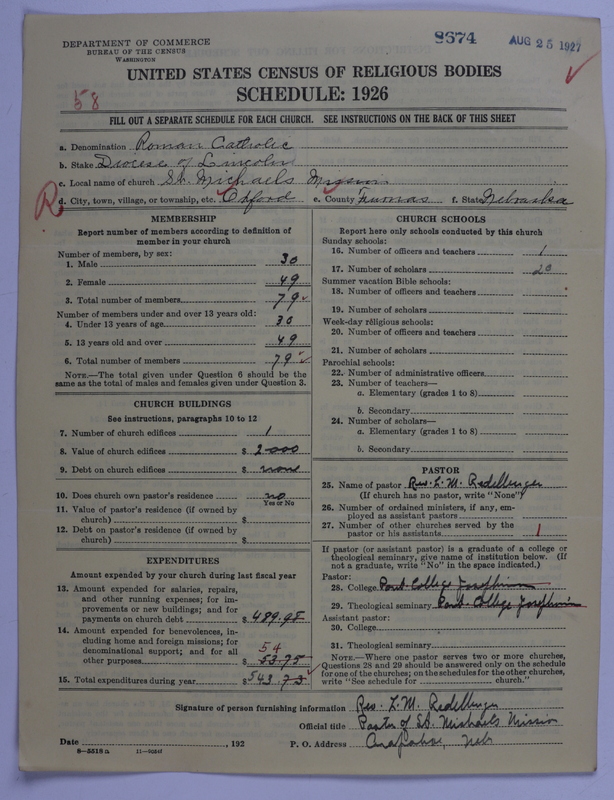 8674
AUG 25 1927
DEPARTMENT OF COMMERCE
BUREAU OF THE CENSUS
WASHINGTON
UNITED STATES CENSUS OF RELIGIOUS BODIES
SCHEDULE: 1926
58
FILL OUT A SEPARATE SCHEDULE FOR EACH CHURCH. SEE INSTRUCTIONS ON THE BACK OF THIS SHEET
a. Denomination Roman Catholic
b. Stake Diocese of Lincoln
c. Local name of church St. Michaels Mission
R
d. City, town, village, or township, etc. Oxford e. County Furnas f. State Nebraska
MEMBERSHIP
Report number of members according to definition of
member in your church
Number of members, by sex:
1. Male 30
2. Female 49
3. Total number of members 79
Number of members under and over 13 years old:
4. Under 13 years of age 30
5. 13 years old and over 49
6. Total number of members 79
NOTE.—The total given under Question 6 should be
same as the total of males and females given under Question 3.
CHURCH BUILDINGS
See instructions, paragraphs 10 to 12
7. Number of church edifices 1
8. Value of church edifices $ 2000
9. Debt on church edifices $ none
10. Does church own pastor's residence no
Yes or No
11. Value of pastor's residence (if owned by
church) $
12. Debt on pastor's residence (if owned by
church) $
EXPENDITURES
Amount expended by your church during last fiscal year
13. Amount expended for salaries, repairs,
and other running expenses; for im-
provements or new buildings; and for
payments on church debt $ 489.98
14. Amount expended for benevolences, in-
cluding home and foreign missions; for
denominational support; and for all
54
other purposes 53.75
15. Total expenditures during year $ 543.73
CHURCH SCHOOLS
Report here only schools conducted by this church
Sunday schools:
16. Number of officers and teachers 1
17. Number of scholars 20
Summer vacation Bible schools:
18. Number of officers and teachers
19. Number of scholars
Week-day religious schools:
20. Number of officers and teachers
21. Number of scholars
Parochial schools:
22. Number of administrative officers
23. Number of teachers—
a. Elementary (grades 1 to 8)
b. Secondary
24. Number of scholars—
a. Elementary (grades 1 to 8)
b. Secondary
PASTOR
25. Name of pastor Rev. L. M. Redellinger
(If church has no pastor, write "None")
26. Number of ordained ministers, if any, em-
ployed as assistant pastors
27. Number of other churches served by the
pastor or his assistants 1
If pastor (or assistant pastor) is a graduate of a college or
theological seminary, give name of institution below. (If
not a graduate, write "No" in the space indicated.)
Pastor:
28. College Pont. College Josephinum
29. Theological seminary Pont. College Josephinum
Assistant pastor:
30. College
31. Theological seminary
NOTE.—Where one pastor serves two or more churches,
Questions 28 and 29 should be answered only on the schedule
for one of the churches; on the schedules for the other churches,
write "See schedule for church."
Signature of person furnishing information Rev. L. M. Redellinger
Official title Pastor of St. Michaels Mission
Date , 192 P. O. Address Arapahoe, Neb
8-5518 a